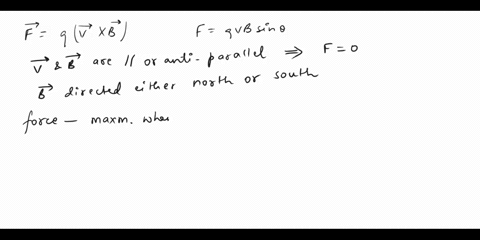 F⃗ = q (V⃗ × B⃗) F = qVB sinθ
V⃗ & B⃗ are // or anti-parallel ⟹ F = 0
B⃗ directed either north or south
force — maxm. whe